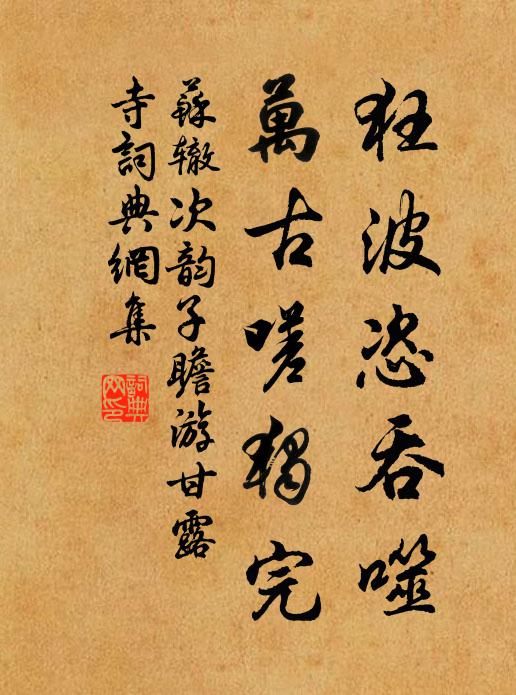 狂波恣吞噬
萬古嗟獨完
蘇辙次韵子瞻游甘露
寺詞典網集
詞典網印